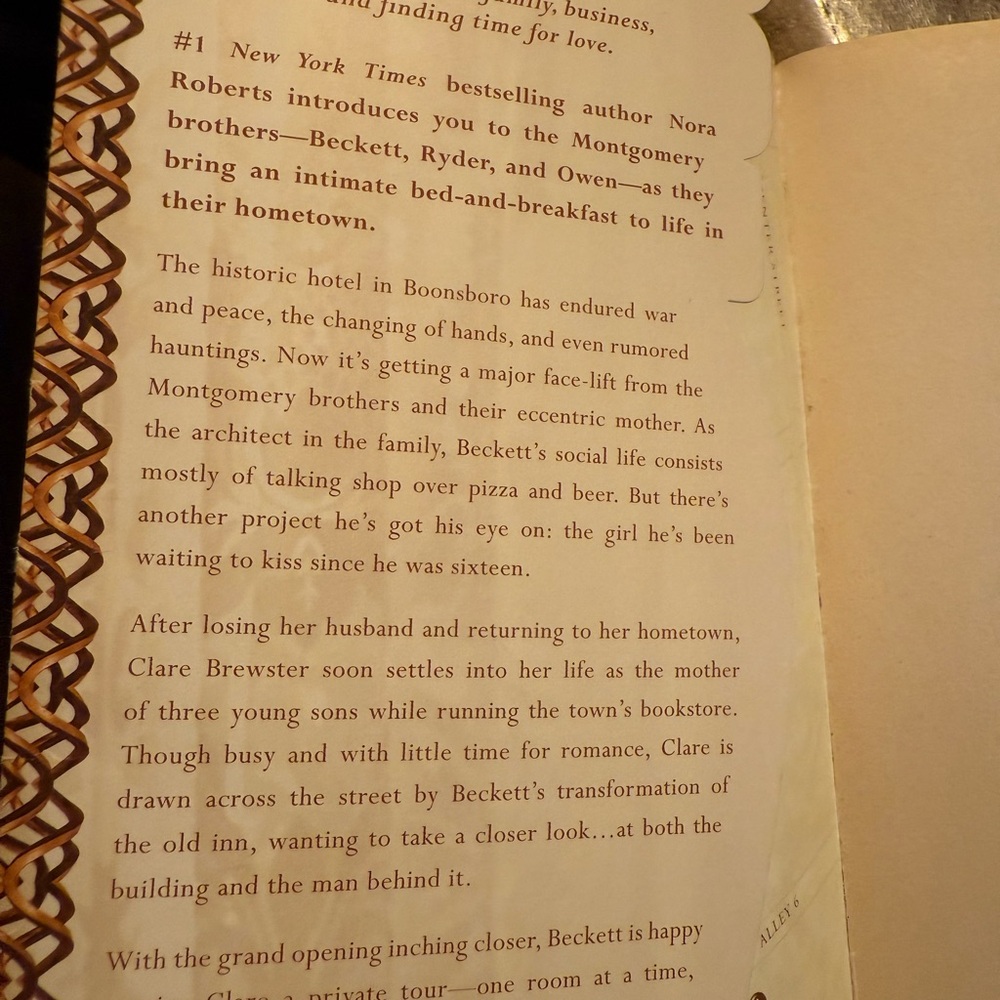 family, business,
and finding time for love.
#1 New York Times bestselling author Nora
Roberts introduces you to the Montgomery
brothers—Beckett, Ryder, and Owen—as they
bring an intimate bed-and-breakfast to life in
their hometown.
The historic hotel in Boonsboro has endured war
and peace, the changing of hands, and even rumored
hauntings. Now it's getting a major face-lift from the
Montgomery brothers and their eccentric mother. As
the architect in the family, Beckett's social life consists
mostly of talking shop over pizza and beer. But there's
another project he's got his eye on: the girl he's been
waiting to kiss since he was sixteen.
After losing her husband and returning to her hometown,
Clare Brewster soon settles into her life as the mother
of three young sons while running the town's bookstore.
Though busy and with little time for romance, Clare is
drawn across the street by Beckett's transformation of
the old inn, wanting to take a closer look...at both the
building and the man behind it.
With the grand opening inching closer, Beckett is happy
Clare a private tour—one room at a time,
ALLEY 6